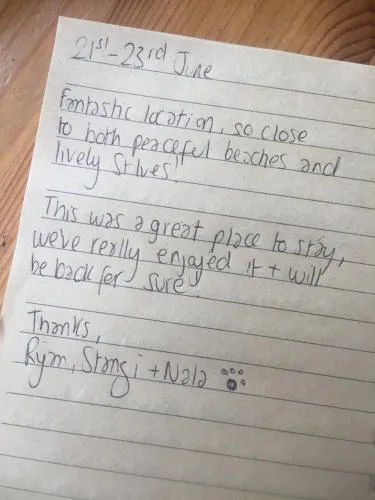 21st-23rd June
Fantastic location, so close
to both peaceful beaches and
lively St Ives!
This was a great place to stay,
we've really enjoyed it + will
be back for sure.
Thanks,
+ Nala